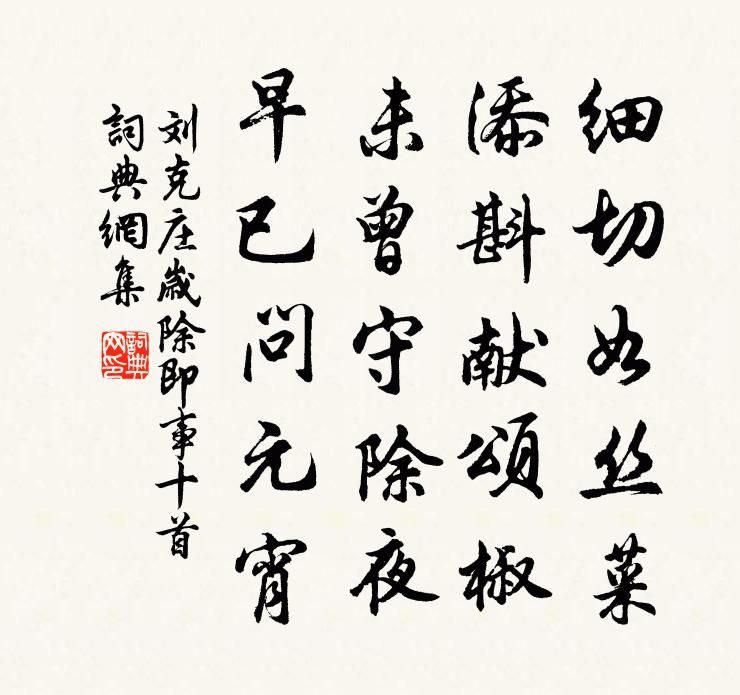 细切如丝菜
添斟献頌椒
未曾守除夜
早已问元宵
刘克庄歲除即事十首
詞典網集
詞典網印